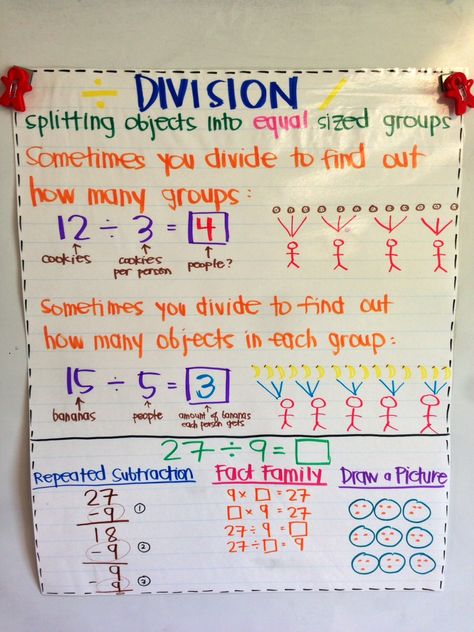 ÷ DIVISION /
splitting objects into equal sized groups
Sometimes you divide to find out
how many groups:
12 ÷ 3 = 4
cookies
cookies per person
people?
Sometimes you divide to find out
how many objects in each group:
15 ÷ 5 = 3
bananas
people
amount of bananas each person gets
27 ÷ 9 = □
Repeated Subtraction
27
-9 ①
18
-9 ②
9
-9 ③
Fact Family
9 × □ = 27
□ × 9 = 27
27 ÷ 9 = □
27 ÷ □ = 9
Draw a Picture